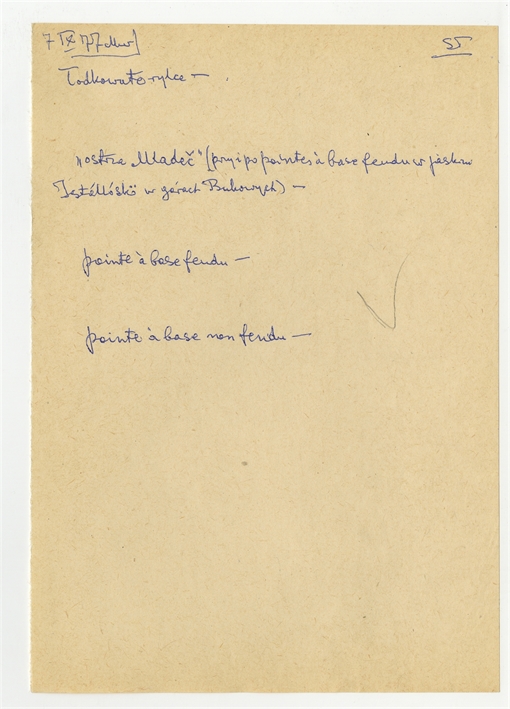 7 IX 77 55
Łódkowate rylce —
"ostrza „Mladeč" (przy i po pointes à base fendu w jaskini
Istállóskö w górach Bukowych) —
pointe à base fendu —
pointe à base non fendu —